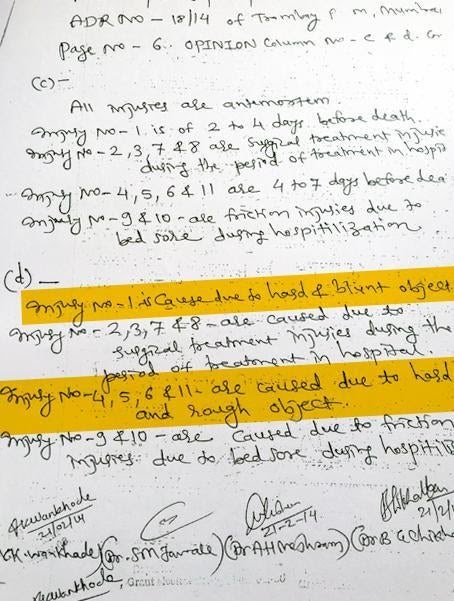 ADR NO - 18/14 of Trombay P
Page no - 6. OPINION Column no - c & d.
(c) -
All injuries are antemortem.
Injury No - 1. is of 2 to 4 days before death.
Injury No - 2, 3, 7 & 8 are surgical treatment injurie
during the period of treatment in hospit
Injury No - 4, 5, 6 & 11 are 4 to 7 days before dea
Injury No - 9 & 10 - are friction injuries due to
bed sore during hospitilization
(d) -
Injury no - 1 is Cause due to hard & blunt object
Injury No - 2, 3, 7 & 8 - are caused due to
surgical treatment injuries during the
period of treatment in hospital.
Injury No - 4, 5, 6 & 11 - are caused due to hard
and rough object.
Injury No - 9 & 10 - are caused due to friction
injuries due to bed sore during hospitili
21/02/14 21-2-14 21/2/1
K.K. Wankhade (Dr. S.M. (Dr A H Meshram) (Dr B G